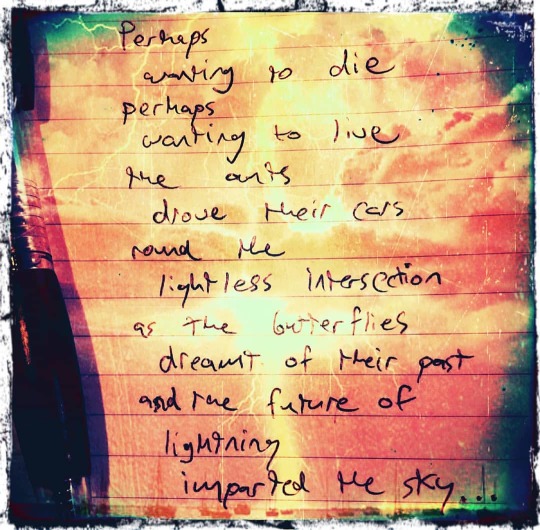 Perhaps
wanting to die
perhaps
wanting to live
the ants
drove their cars
round the
lightless intersection
as the butterflies
dreamt of their past
and the future of
lightning
imparted the sky...